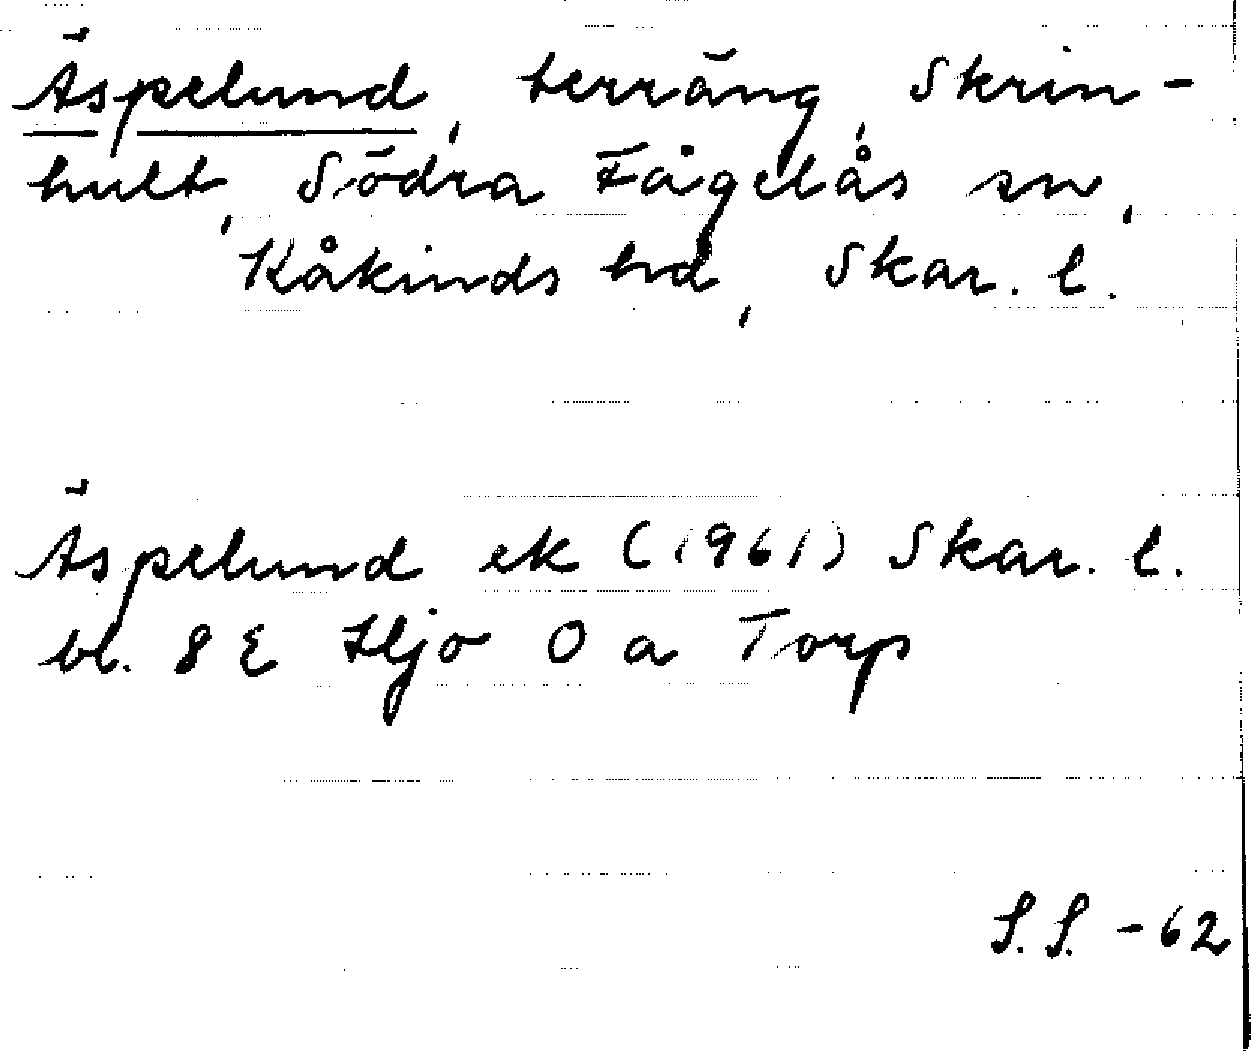 Äspelund, terräng, Skrin-
hult, Södra Fågelås sn,
Kåkinds hd, Skar. l.
Äspelund ek (1961) Skar. l.
bl. 8 E Hjo O a Torp
S.S. -62